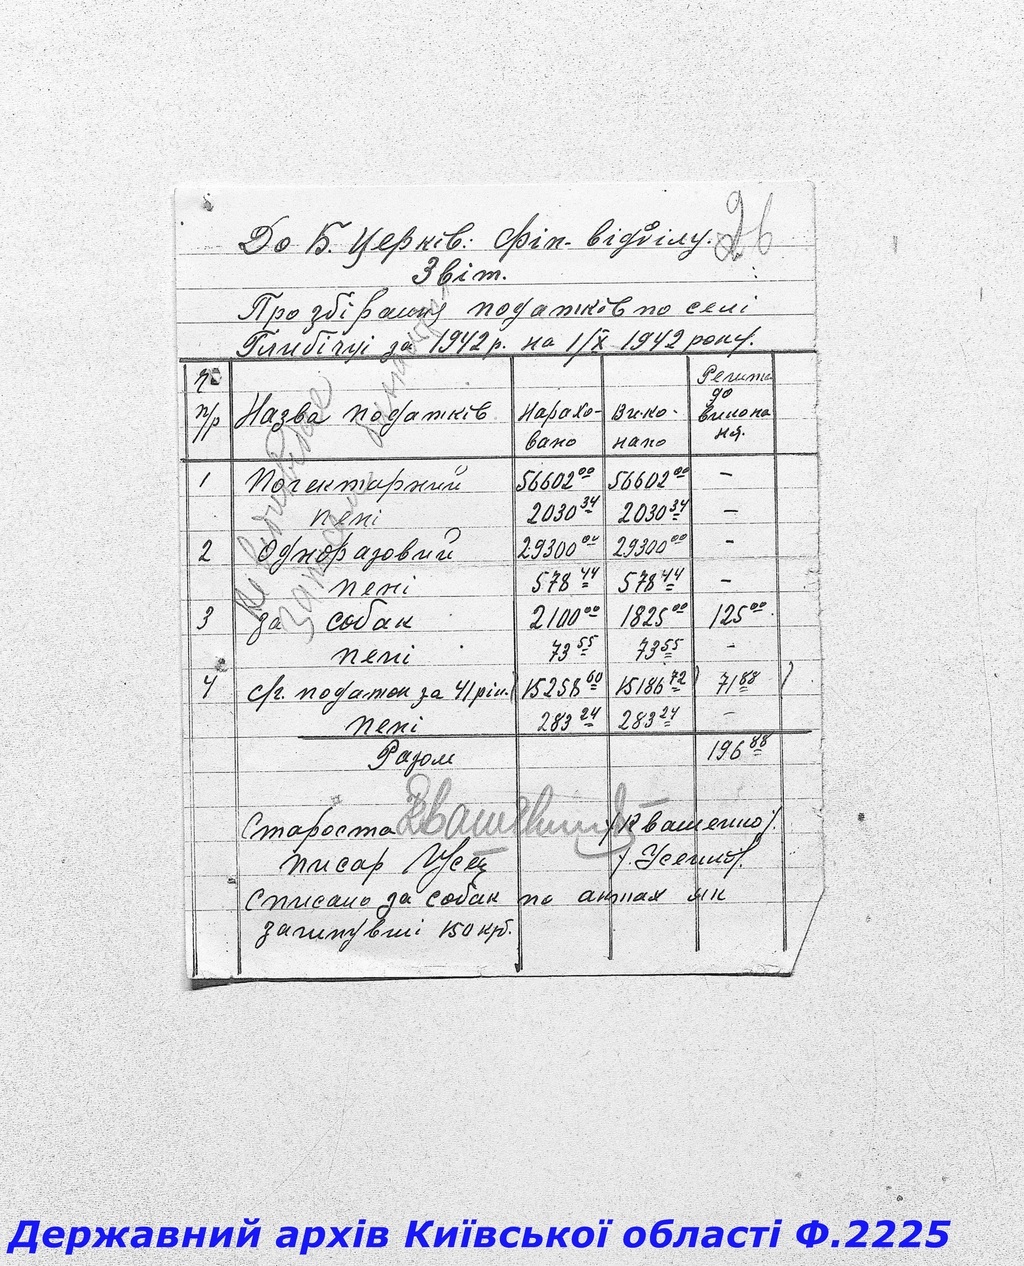 26
До Б. Церків: Фін. відділу.
Звіт.
Про збірання податків по селі
Глибічці за 1942 р. на 1/IX 1942 року.
№ п/р Назва податків Нарахо-вано Вико-нано Решти до виконання.
1 Погектарний 56602 00 56602 00 —
пені 2030 34 2030 34 —
2 Одноразовий 29300 00 29300 00 —
пені 578 44 578 44 —
3 за собак 2100 00 1825 00 125 00
пені 73 55 73 55 —
4 с/г. податок за 41 рік. 15258 60 15186 72 71 88
пені 283 24 283 24 —
Разом 196 88
Староста /Квашенко/.
писар Усен
Списано за собак по актах як
загинувші 150 крб.
Державний архів Київської області Ф.2225